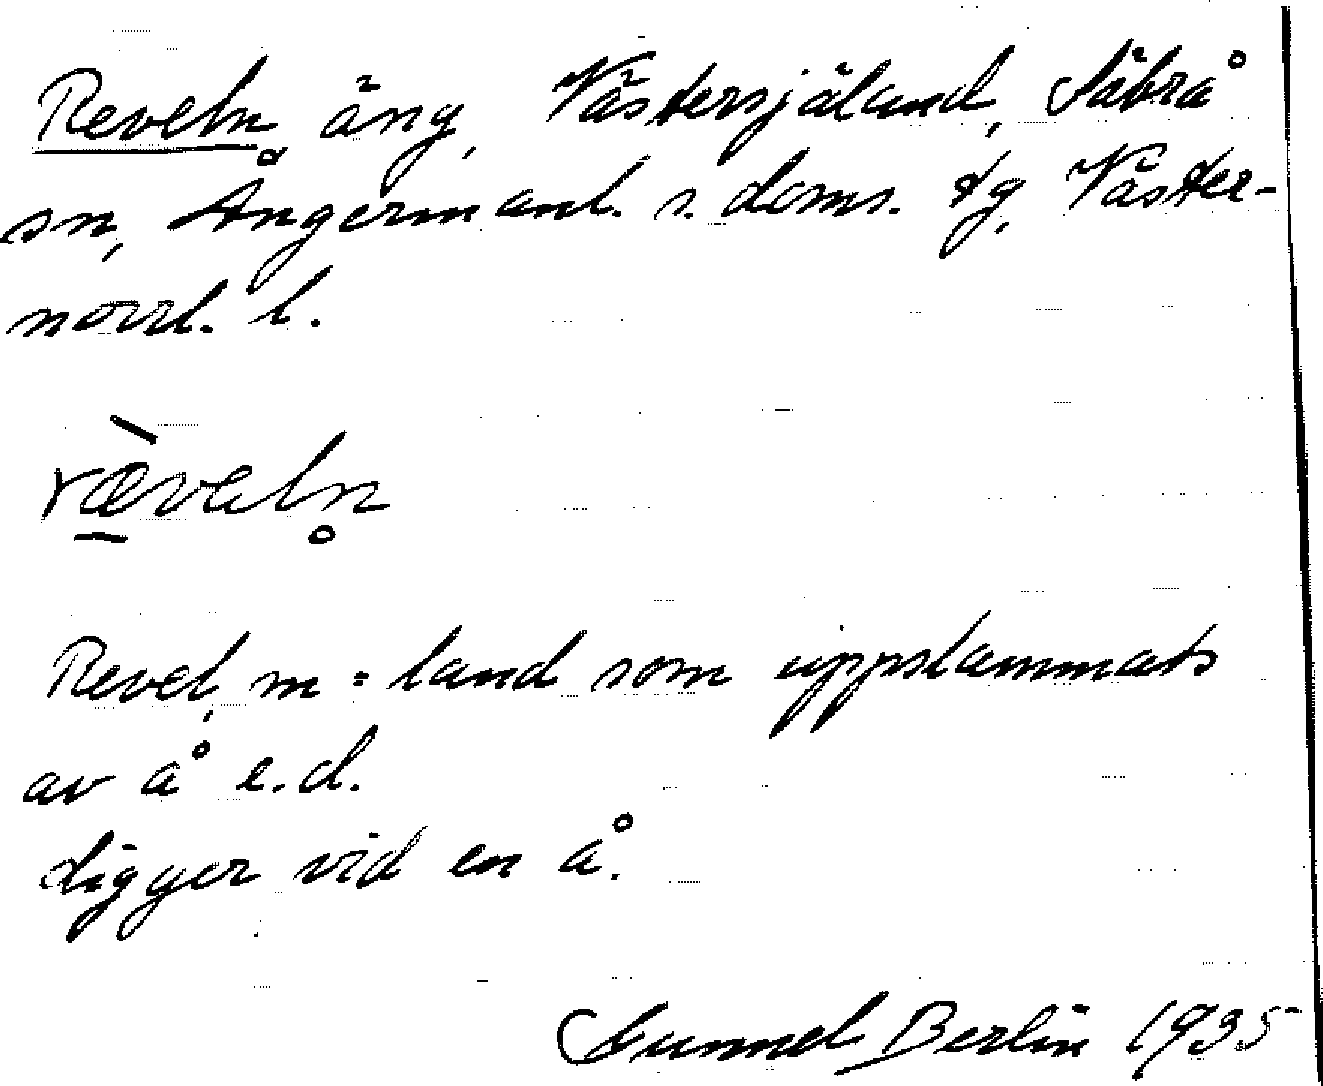 Reveln äng, Västersjäland, Säbrå
sn, Ångermanl. s. doms. tg, Väster-
norrl. l.
ræ̀veln̥
Revel, m = land som uppslammats
av å e.d.
Ligger vid en å.
Gunnel Berlin 1935